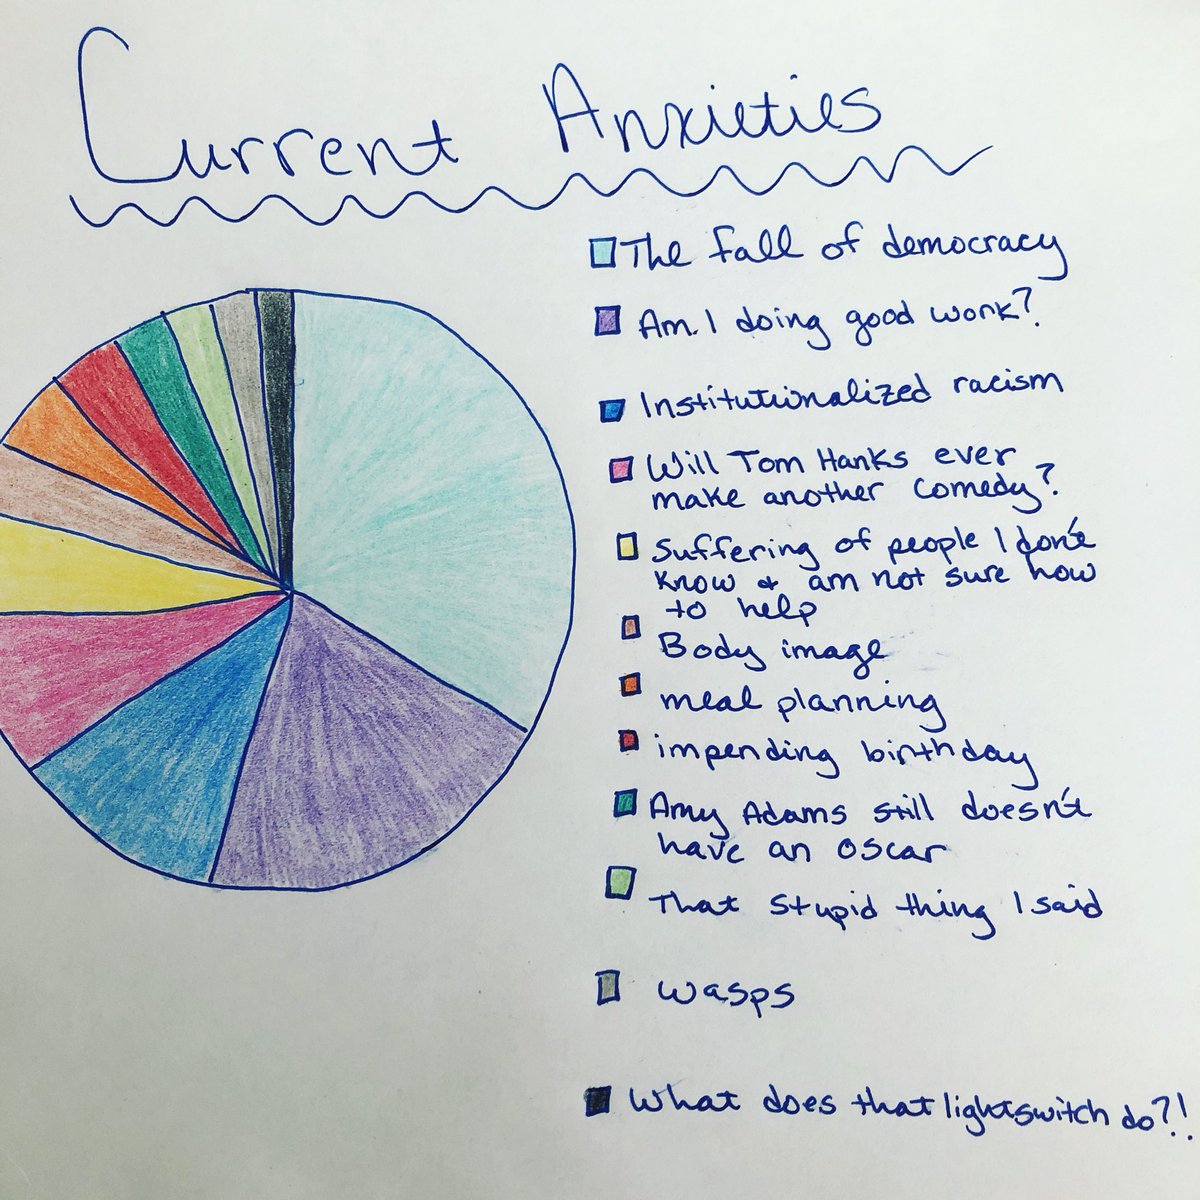 Current Anxieties
The fall of democracy
Am I doing good work?
Institutionalized racism
Will Tom Hanks ever
make another comedy?
Suffering of people I don't
know & am not sure how
to help
Body image
meal planning
impending birthday
Amy Adams still doesn't
have an oscar
That stupid thing I said
wasps
What does that lightswitch do?!